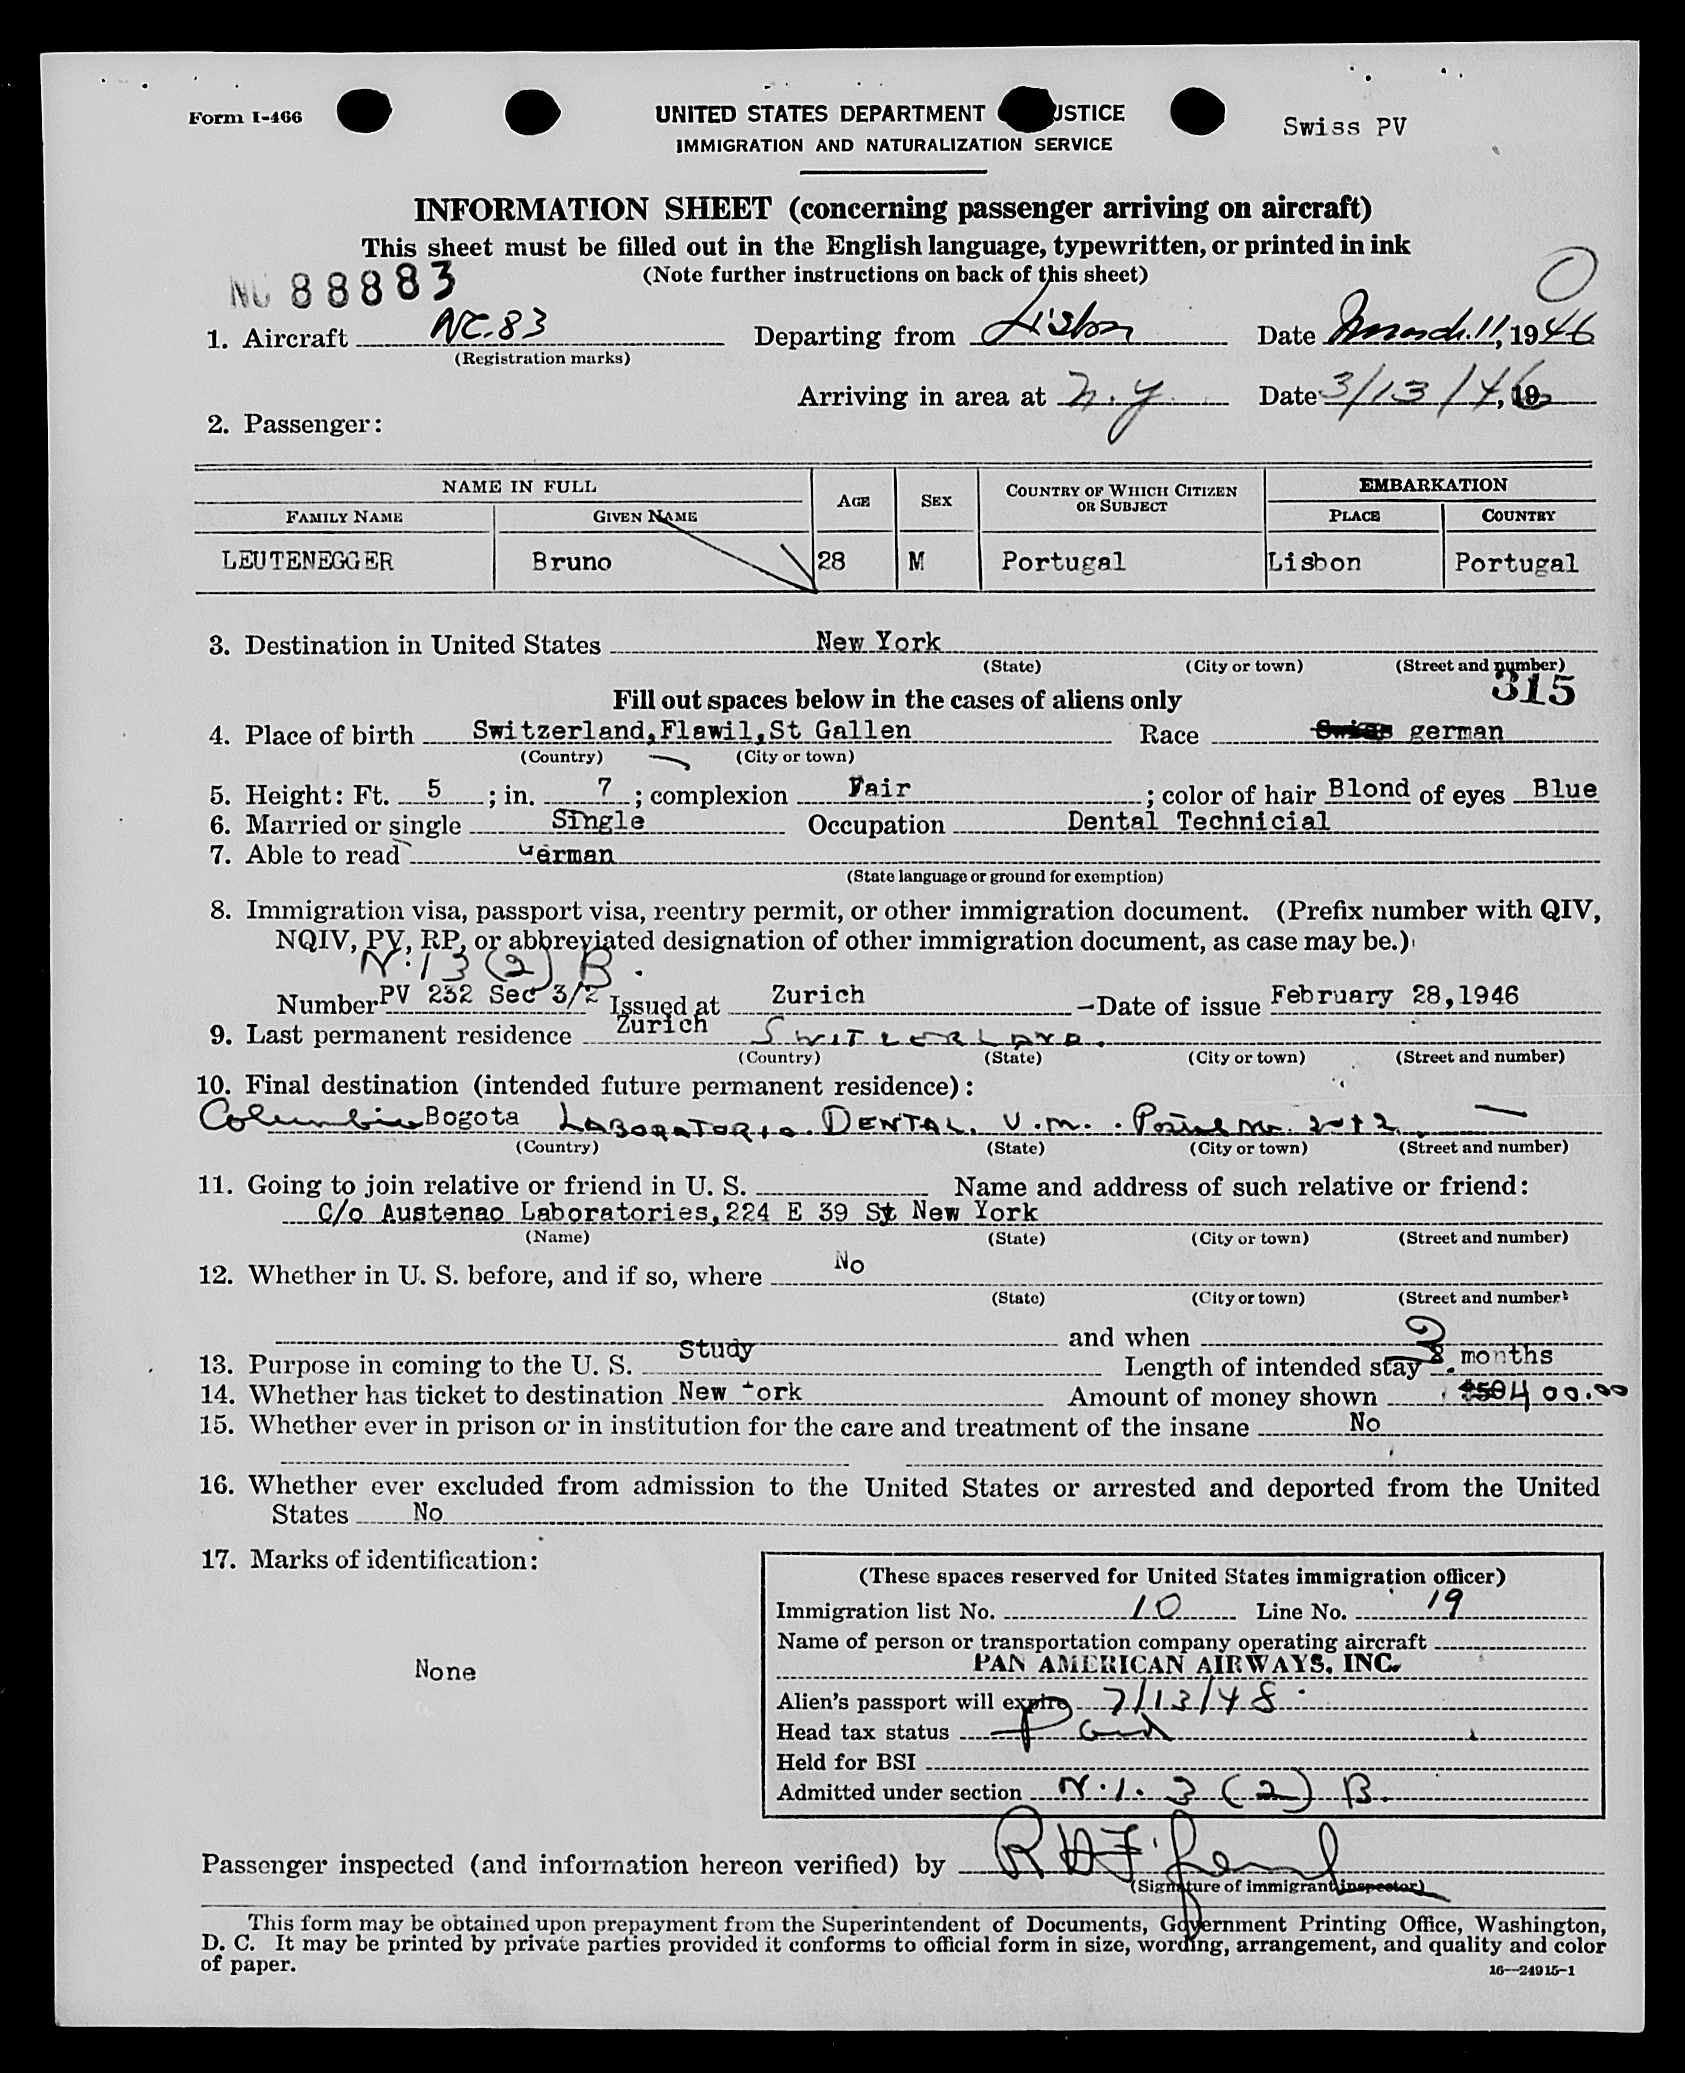 Form I-466
UNITED STATES DEPARTMENT JSTICE
IMMIGRATION AND NATURALIZATION SERVICE
Swiss PV
INFORMATION SHEET (concerning passenger arriving on aircraft)
This sheet must be filled out in the English language, typewritten, or printed in ink
(Note further instructions on back of this sheet)
NC 88883
1. Aircraft NC.83 Departing from Lisbon Date March.11, 1946
(Registration marks)
Arriving in area at N.Y. Date 3/13/46, 19
2. Passenger:
NAME IN FULL AGE SEX COUNTRY OF WHICH CITIZEN OR SUBJECT EMBARKATION
FAMILY NAME GIVEN NAME PLACE COUNTRY
LEUTENEGGER Bruno 28 M Portugal Lisbon Portugal
3. Destination in United States New York
(State) (City or town) (Street and number)
315
Fill out spaces below in the cases of aliens only
4. Place of birth Switzerland,Flawil,St Gallen Race Swiss german
(Country) (City or town)
5. Height: Ft. 5 ; in. 7 ; complexion Fair ; color of hair Blond of eyes Blue
6. Married or single Single Occupation Dental Technicial
7. Able to read German
(State language or ground for exemption)
8. Immigration visa, passport visa, reentry permit, or other immigration document. (Prefix number with QIV,
NQIV, PV, RP, or abbreviated designation of other immigration document, as case may be.)
N.13 (2) B.
Number PV 232 Sec 3/2 Issued at Zurich Date of issue February 28,1946
9. Last permanent residence Zurich SWITZERLAND.
(Country) (State) (City or town) (Street and number)
10. Final destination (intended future permanent residence):
Columbia Bogota LABORATORIO DENTAL. V.M.
(Country) (State) (City or town) (Street and number)
11. Going to join relative or friend in U. S. Name and address of such relative or friend:
C/o Austenao Laboratories,224 E 39 St New York
(Name) (State) (City or town) (Street and number)
12. Whether in U. S. before, and if so, where No
(State) (City or town) (Street and number)
and when
13. Purpose in coming to the U. S. Study Length of intended stay months
14. Whether has ticket to destination New York Amount of money shown 400.00
15. Whether ever in prison or in institution for the care and treatment of the insane No
16. Whether ever excluded from admission to the United States or arrested and deported from the United
States No
17. Marks of identification:
None
(These spaces reserved for United States immigration officer)
Immigration list No. 10 Line No. 19
Name of person or transportation company operating aircraft
PAN AMERICAN AIRWAYS, INC.
Alien's passport will expire 7/13/48
Head tax status Paid
Held for BSI
Admitted under section N.1.3 (2) B.
Passenger inspected (and information hereon verified) by
(Signature of immigrant inspector)
This form may be obtained upon prepayment from the Superintendent of Documents, Government Printing Office, Washington,
D. C. It may be printed by private parties provided it conforms to official form in size, wording, arrangement, and quality and color
of paper.
16—24915-1